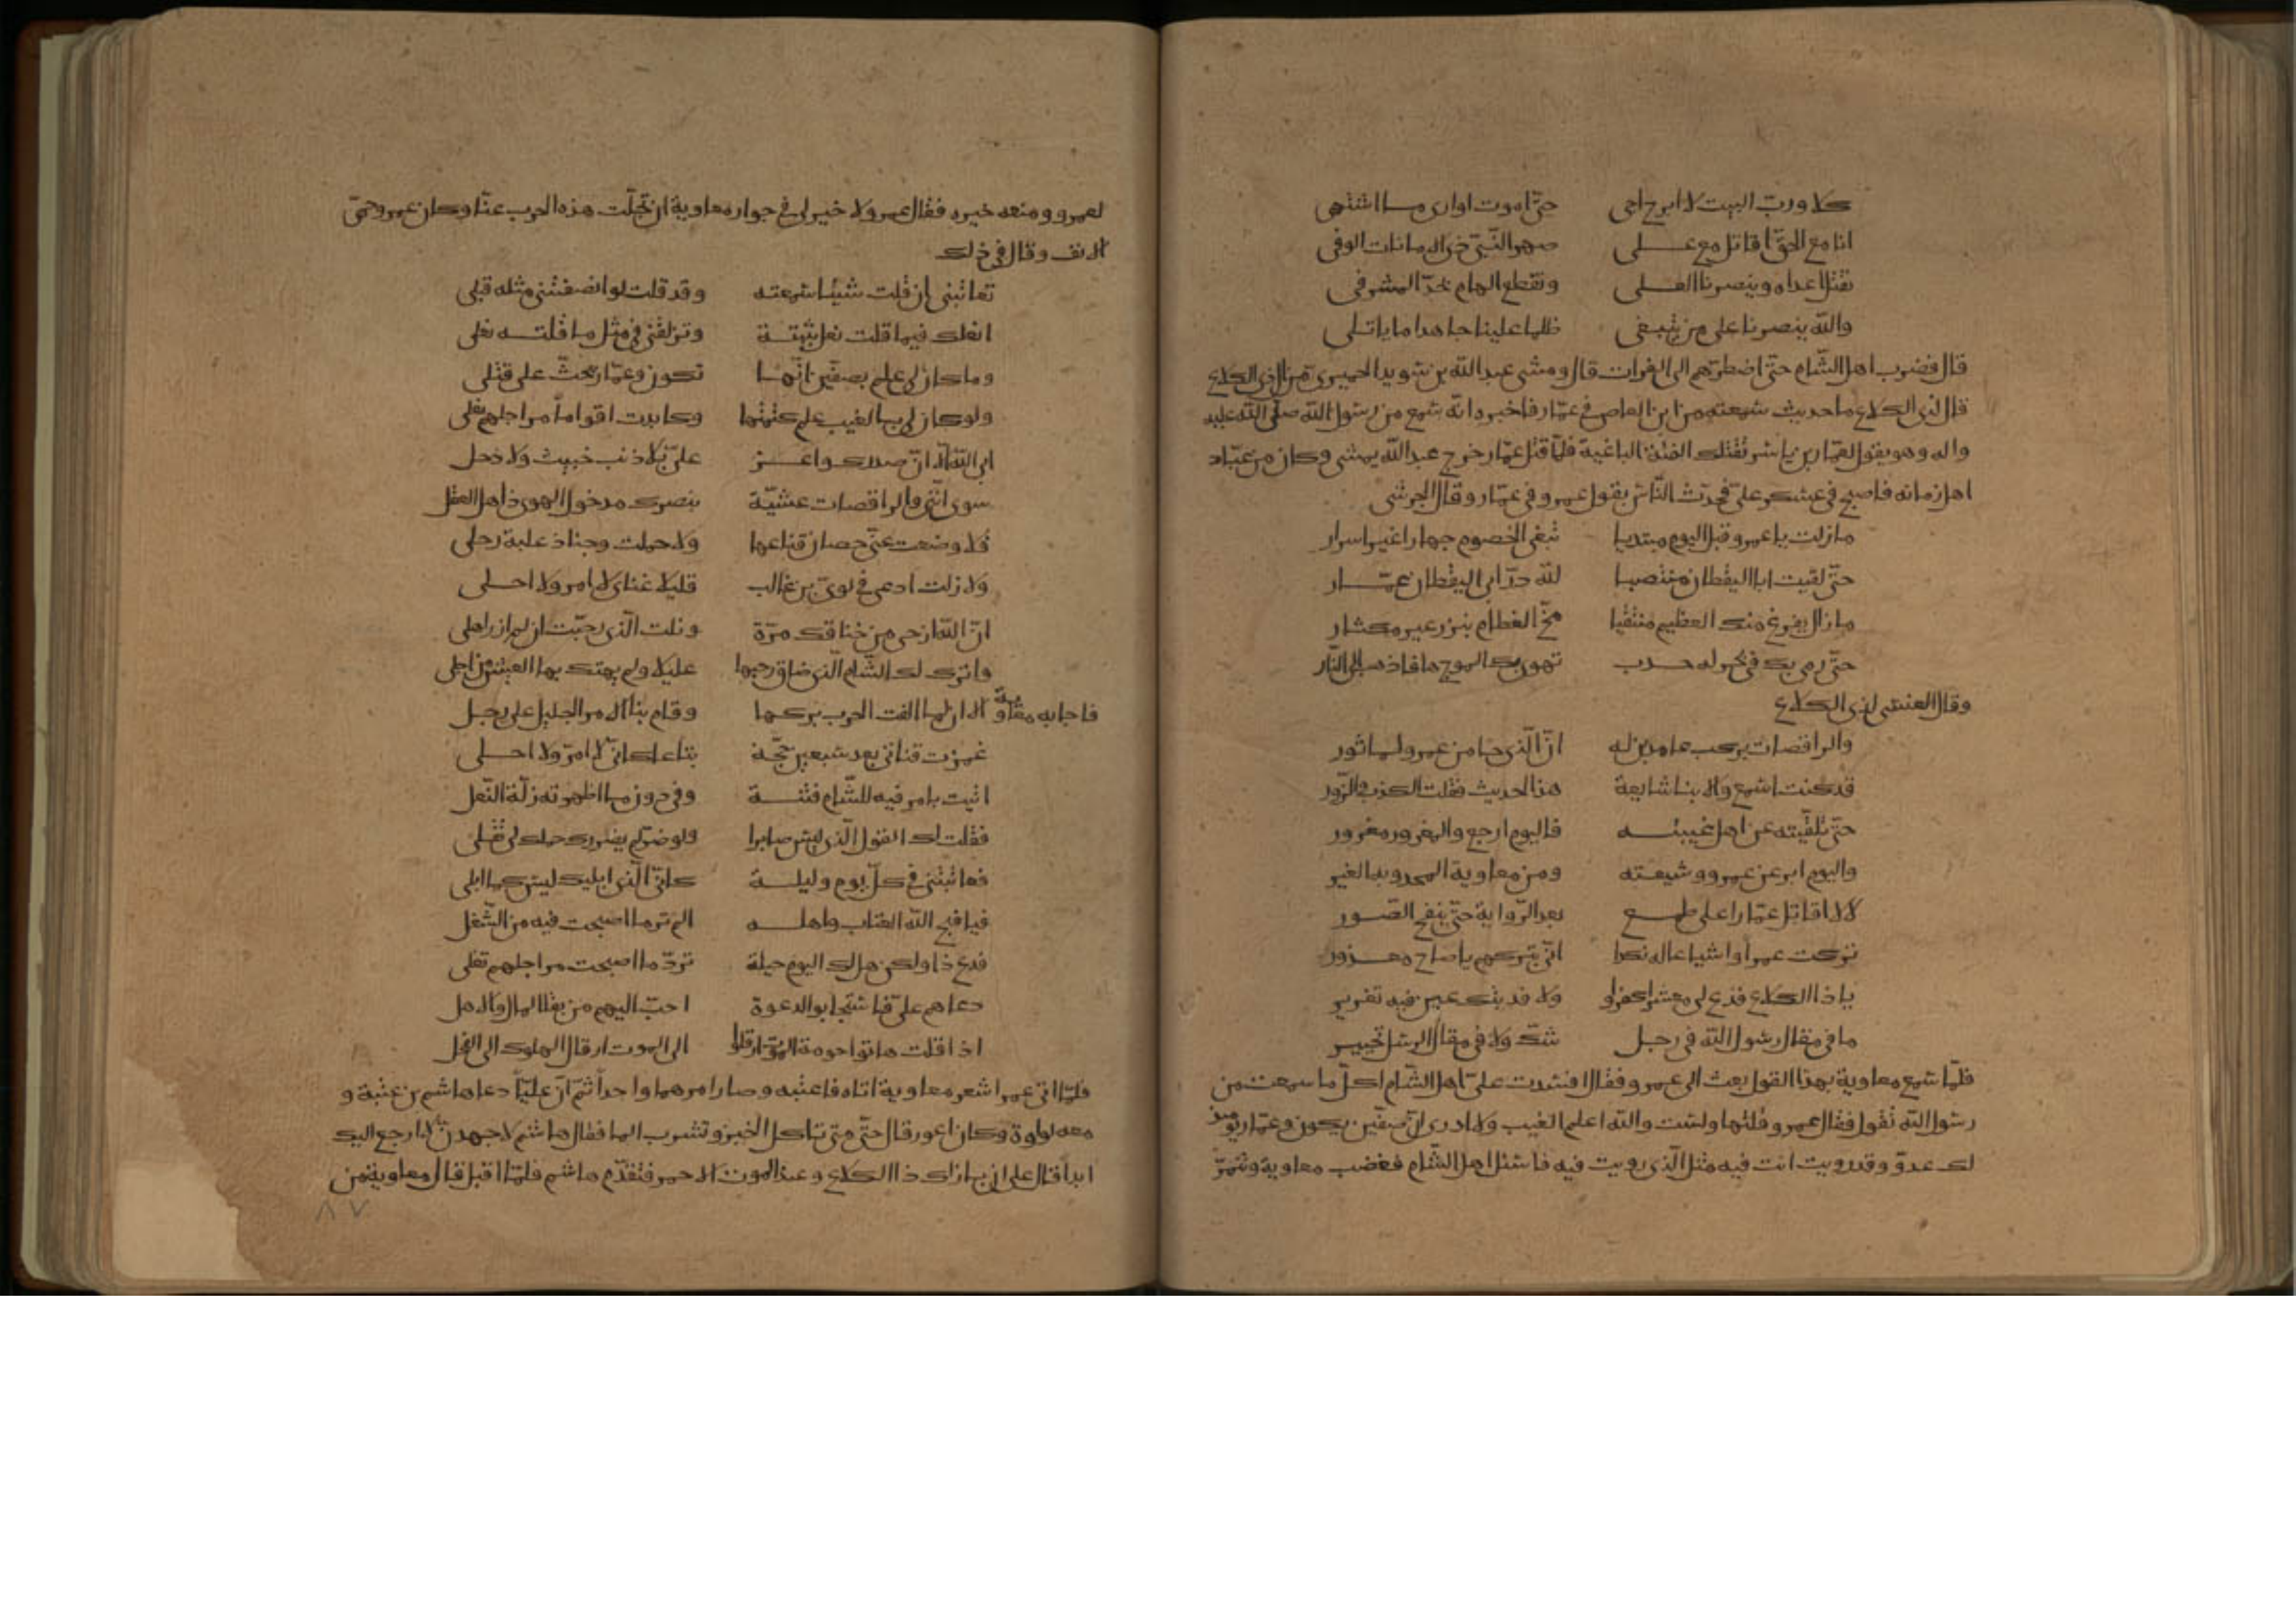 كلا ورب البيت لا ابرح اجى حتّى اموت او ارى ما اشتهى
انا مع الحقّ اقاتل مع على صهر النّبىّ ذى الامانات الوفى
نقتل اعداه وينصرنا العلى ونقطع الهام بحدّ المشرفى
والله ينصرنا على من يبتغى ظلما علينا جاهدا ما ياتلى
قال فضرب اهل الشّام حتّى اضطرّهم الى الفرات قال ومشى عبد الله بن سويد الحميرى من ال ذى الكلاع
قال لذى الكلاع ما حديث سمعته من ابن العاص فى عمّار فاخبره انه سمع من رسول الله صلّى الله عليه
واله وهو يقول لعمّار بن ياسر تقتلك الفئة الباغية فلمّا قتل عمّار خرج عبد الله يمشى وكان من عبّاد
اهل زمانه فاصبح فى عسكر علىّ فحدّث النّاس بقول عمرو فى عمّار وقال الجرشى
ما زلت يا عمرو قبل اليوم مبتديا تبغى الخصوم جهارا غير اسرار
حتّى لقيت ابا اليقظان منتصبا لله درّ ابى اليقظان عمّار
ما زال يقرع منك العظم منتقيا مخّ العظام بنزع غير مكثار
حتّى رمى بك فى بحر له حدب تهوى بك الموج ها فاذهب الى النّار
وقال العنسى لذى الكلاع
والراقصات بركب عامدين له انّ الّذى جا من عمرو لماثور
قد كنت اسمع والانبا شايعة هذا الحديث فقلت الكذب والزّور
حتّى تلقّيته عن اهل عيبته فاليوم ارجع والمغرور مغرور
واليوم ابرء من عمرو وشيعته ومن معاوية المحدو به العير
لا لا اقاتل عمّارا على طمع بعد الرّواية حتّى ينفخ الصّور
تركت عمرا واشياعا له نكرا انّى بتركهم يا صاح معذور
يا ذا الكلاع فدع لى معشرا كفروا ولا فديتك عين فيه تغرير
ما فى مقال رسول الله فى رجل شكّ ولا فى مقال الرسل تحيير
فلمّا سمع معاوية بهذا القول بعث الى عمرو فقال افسدت علىّ اهل الشّام اكلّ ما سمعت من
رسول الله تقول فقال عمرو قلتها ولست والله اعلم الغيب ولا ادرى انّ صفّين يكون وعمّار يومئذ
لك عدوّ وقد رويت انت فيه مثل الّذى رويت فيه فاسئل اهل الشّام فغضب معاوية وتنمّر
لعمرو ومنعه خيره فقال عمرو لا خير لى فى جوار معاوية ان تجلّت هذه الحرب عنّا وكان عمرو حمىّ
الانف وقال فى ذلك
تعاتبنى ان قلت شيئا سمعته وقد قلت لو انصفتنى مثله قبلى
انعلك فيما قلت نعل ثبتة وتزلق بى فى مثل ما قلته نعلى
وما كان لى علم بصفّين انّها تكون وعمّار يحثّ على قتلى
ولو كان لى بالغيب علم كتمتها وكابدت اقواماً مراجلهم تغلى
ابى الله الّا انّ صدرك واغر علىّ بلا ذنب خبيث ولا ذحل
سوى انّنى والراقصات عشيّة بنصرك مدخول الهوى ذاهل العقل
فلا وضعت عنّى حصان قناعها ولا حملت وجناذ علبة رحلى
ولا زلت ادعى فى لوىّ بن غالب قليلا غناى لا امر ولا احلى
ان الله ارخى من خناقك مرّة ونلت الّذى رجّيت ان لم ازر اهلى
واترك لك الشّام الّذى ضاق رحبها عليك ولم يهنك بها العيش من اجلى
فاجابه معاوية الان لما القت الحرب بركها وقام بنا الامر الجليل على رجل
غمزت قناتى بعد سبعين حجّة تباعا كانّى لا امرّ ولا احلى
اتيت بامر فيه للشّام فتنة وفى دون ما اظهرته زلّة النّعل
فقلت لك القول الّذى ليس صابرا ولو ضرّ لم يضررك حملك لى ثقلى
فعاتبتنى فى كلّ يوم وليلة كانّ الّذى ابليك ليس كما ابلى
فيا قبح الله العتاب واهله الم تر ما اصبحت فيه من الشّغل
فدع ذا ولكن هل لك اليوم حيلة تردّ ما اصبحت مراجلهم تغلى
دعاهم علىّ فاستجابوا لدعوة احبّ اليهم من بقا المال والاهل
اذا قلت هابوا حومة الموت ارقلوا الى الموت ارقال الهلوك الى الفحل
فلمّا اتى عمرا شعر معاوية اتاه فاعتبه وصار امرهما واحداً ثمّ انّ عليّاً دعا هاشم بن عتبة و
معه لواوة وكان اعور قال حتّى متى تاكل الخبز وتشرب الما فقال هاشم لاجهدنّ الّا ارجع اليك
ابداً قال على انّ بازاك ذا الكلاع وعنده الموت الاحمر فتقدّم هاشم فلمّا اقبل قال معاوية من
٨٧